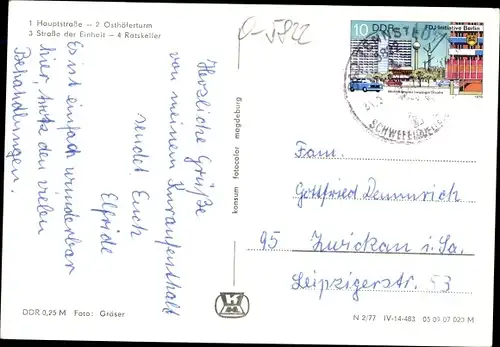 1 Hauptstraße – 2 Osthöferturm
3 Straße der Einheit – 4 Ratskeller
D-5822
10 DDR FDJ Initiative Berlin
SCHWEFEL
Herzliche Grüße
von meinem Kuraufenthalt
sendet Euch
Elfriede
Es ist einfach wunderbar
hier, trotz den vielen
Behandlungen.
konsum fotocolor magdeburg
Fam.
Gottfried Demmrich
95 Zwickau i. Sa.
Leipzigerstr. 53
DDR 0,25 M Foto: Gräser
N 2/77 IV-14-483 05 09 07 020 M